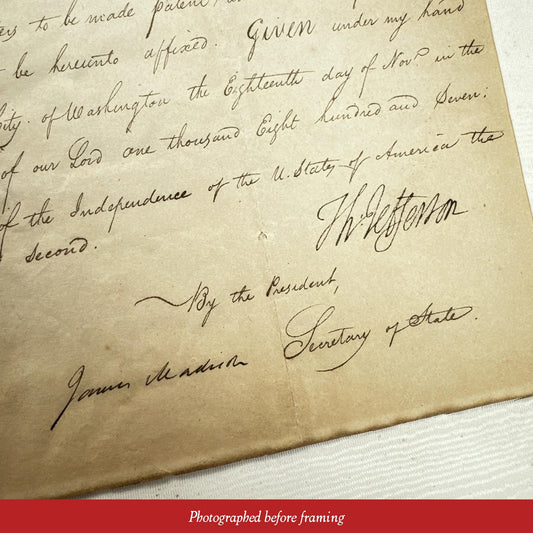 to be made patent,
be hereunto affixed. Given under my hand
City of Washington the Eighteenth day of Nov.r in the
of our Lord one thousand Eight hundred and Seven:
of the Independence of the U. States of America the
Second.
Th. Jefferson
By the President,
James Madison Secretary of State.
Photographed before framing